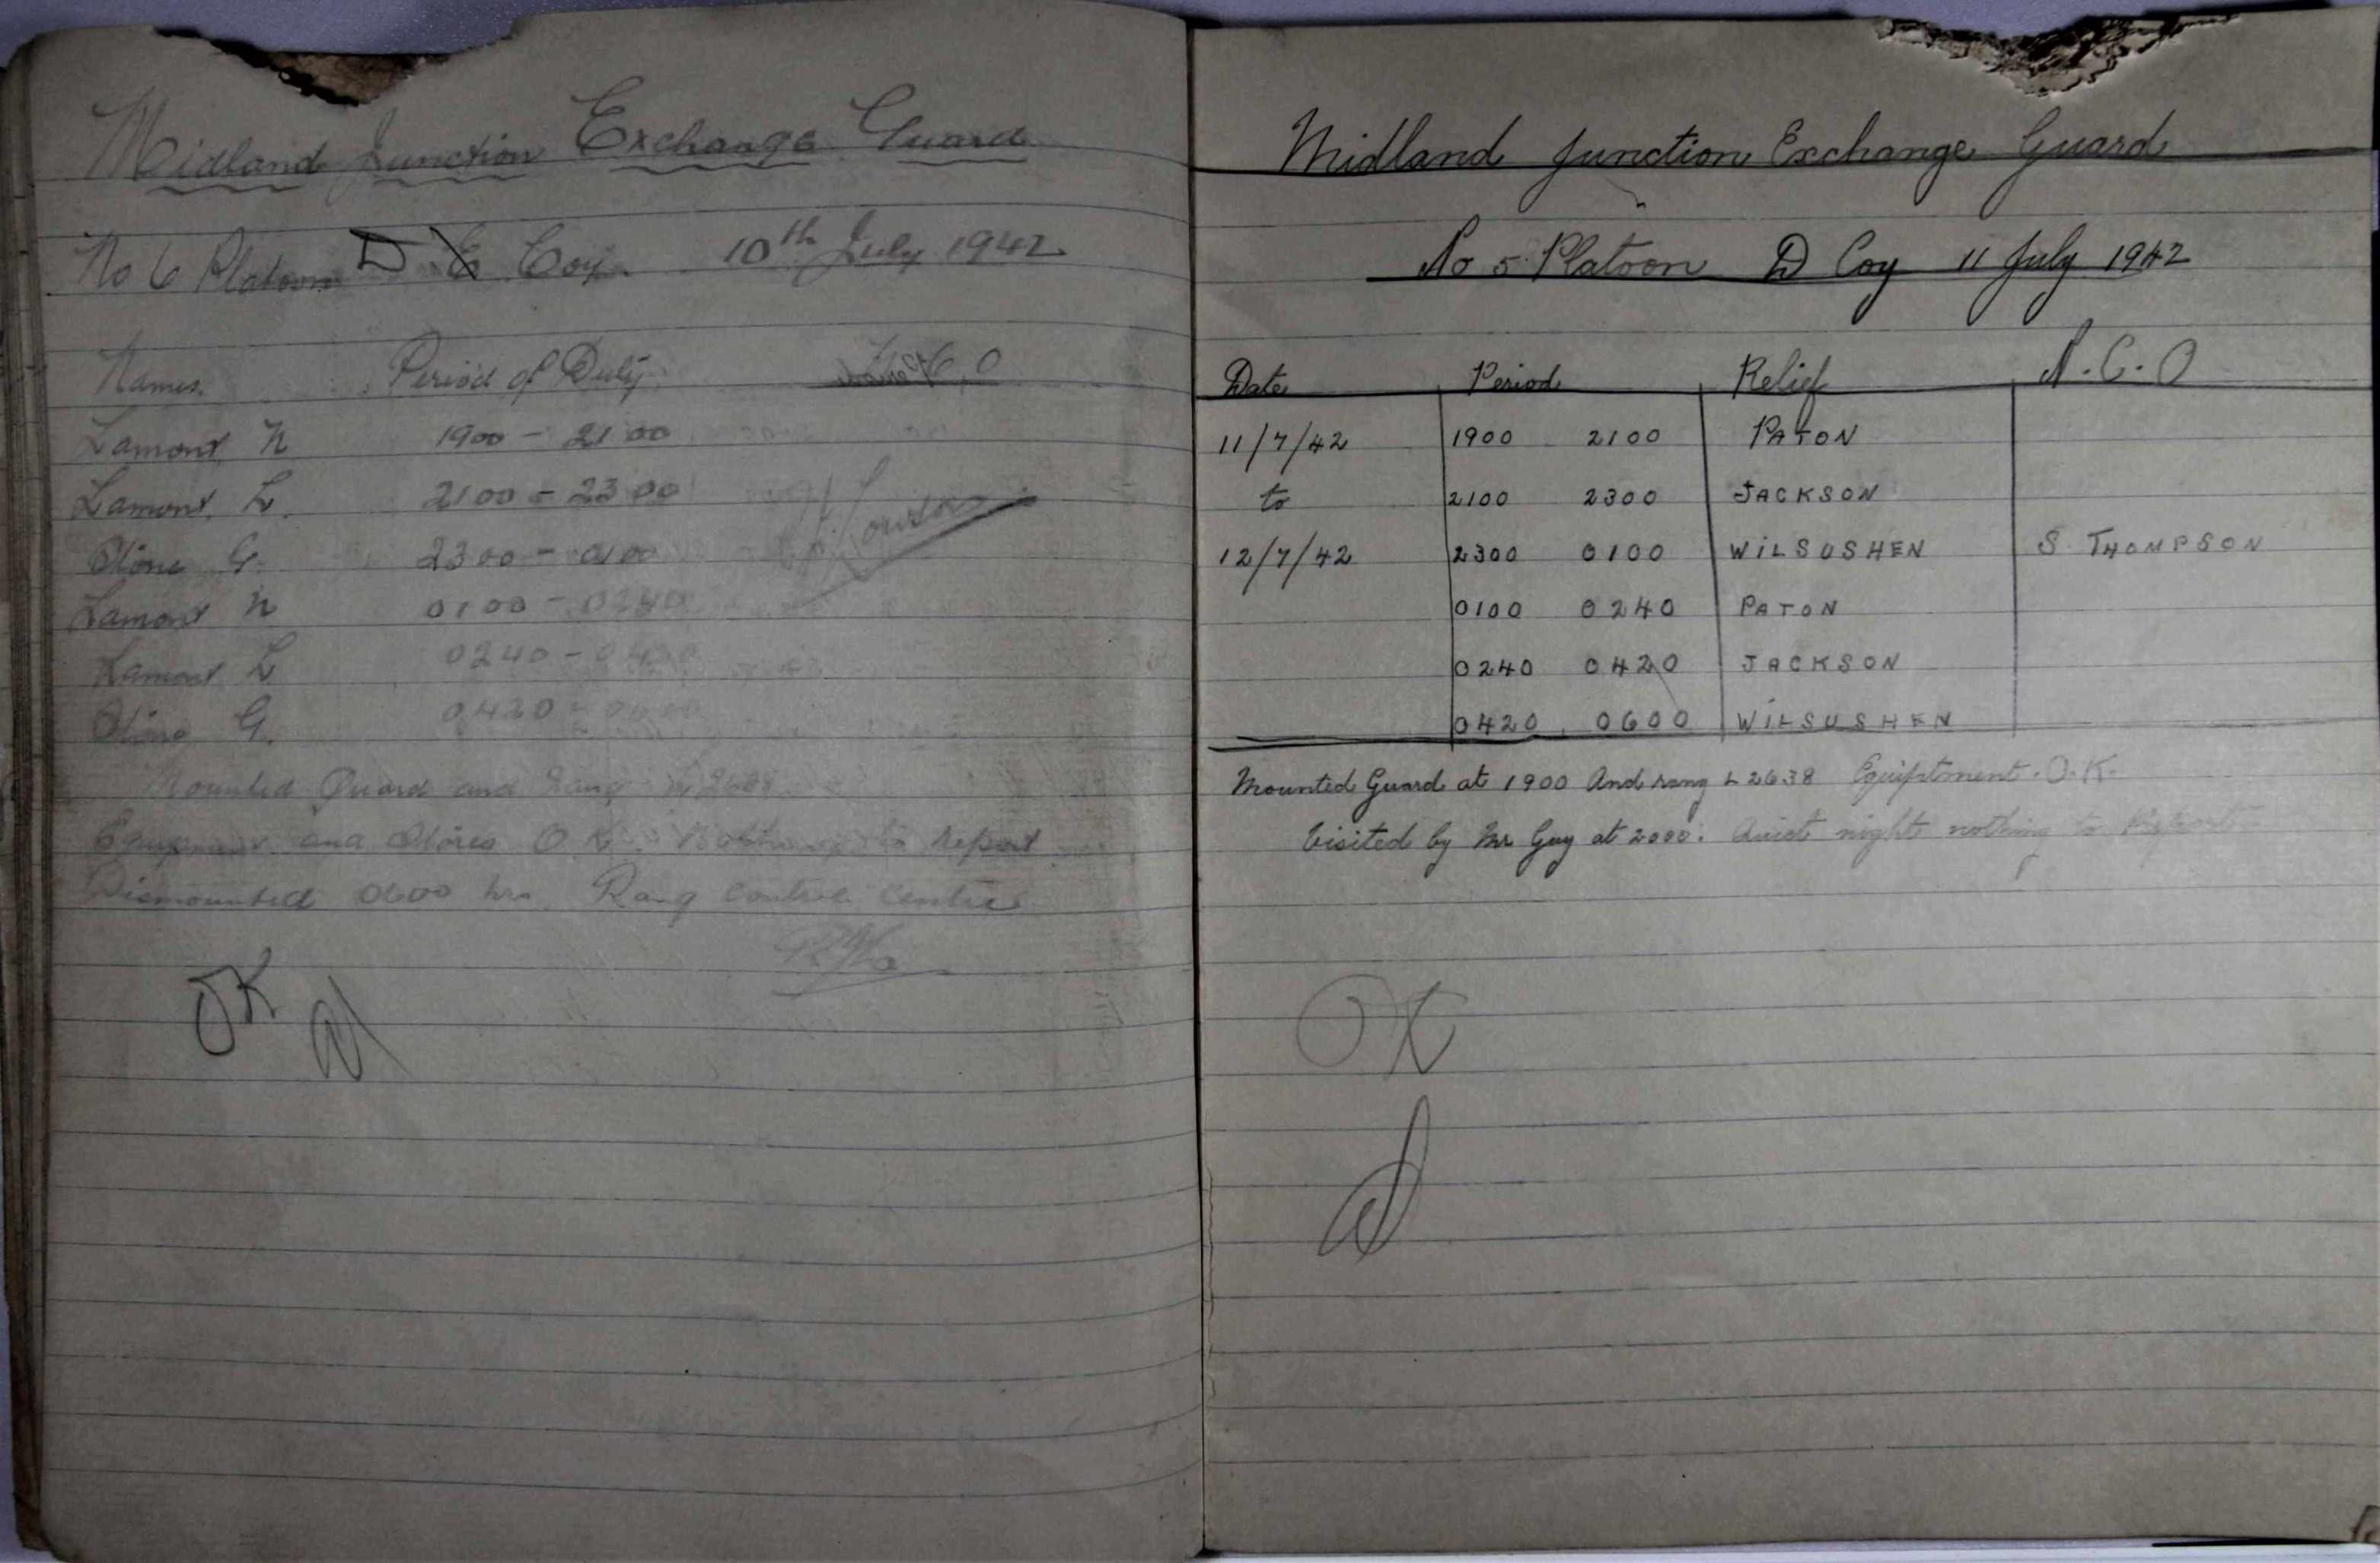 Midland Junction Exchange Guard
No 6 Platoon D E Coy. 10th July 1942
Names. Period of Duty. N.C.O
Lamont N 1900 - 2100
Lamont L. 2100 - 2300
G. 2300 - 0100
Lamont N 0100 - 0240
Lamont L 0240 - 0420
G. 0420 - 0600
Mounted Guard and Rang
Equipment and Stores O.K. Nothing to report
Dismounted 0600 hrs. Rang Control Centre
OK
Midland Junction Exchange Guard
No 5 Platoon D Coy 11 July 1942
Date Period Relief N.C.O
11/7/42 1900 2100 PATON
to 2100 2300 JACKSON
12/7/42 2300 0100 WILSUSHEN S. THOMPSON
0100 0240 PATON
0240 0420 JACKSON
0420 0600 WILSUSHEN
Mounted Guard at 1900 And rang L 2638 Equiptment. O.K.
Visited by Mr Guy at 2000. Quiet night nothing to Report
OK